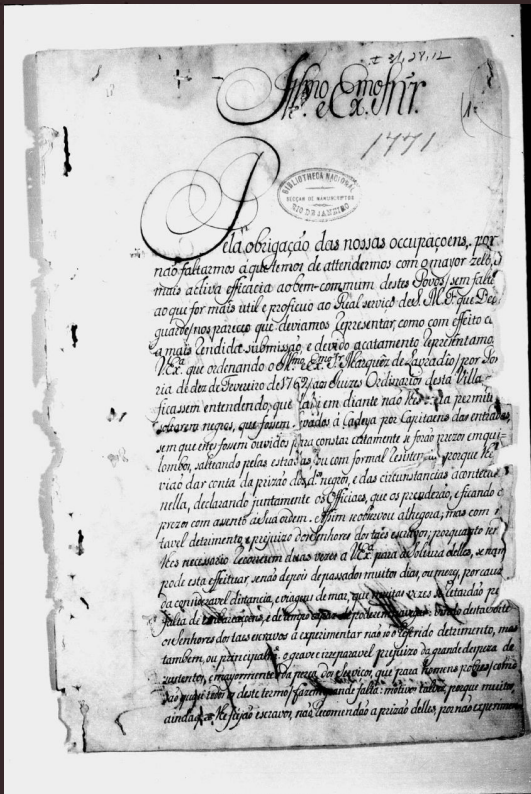 I-31,28,12
Illmo. e Exmo. Snr.
1771
BIBLIOTHECA NACIONAL
SECÇAO DE MANUSCRIPTOS
RIO DE JANEIRO
Pela obrigação das nossas occupaçoens, por
não faltarmos á que temos de attendermos com o mayor zello, e
mais activa efficacia ao bem-commum destes Povos, sem faltar
ao que for mais util e proficuo ao Real serviço de S. M. F. que Deos
guarde, nos pareceo que deviamos Representar, como com effeito c
a mais Rendida submissão, e devido acatamento Representamos
V. Exa. que ordenando o Illmo. e Exmo. Sr. Marquez de Lavradio, por
ria de dez de Fevereiro de 176 aos Juizes Ordinarios desta Villa
ficassem entendendo, que dahi em diante não permiti
soltarem negros, que fossem levados á Cadeya por Capitaens das entradas
sem que estes fossem ouvidos para constar certamente se forão prezos em qui
lombos, salteando pelas estradas, ou com formal Rezistencia, porque
vião dar conta da prizão dos ds. negros, e das circunstancias acontec
nella, declarando juntamente os Officiaes, que os prenderão, e ficando o
prezos com assento á sua ordem. Assim se observou athegora; mas com
tavel detrimento, e prejuizo dos Senhores dos taes escravos; porquanto
lhes necessario Recorrem duas vezes a V. Exa. para a soltura delles, se nam
pode esta effeituar, senão depois de passados muitos dias, ou mezes, por cauza
da consideravel distancia, e viagem de mar, que muitas vezes se retardão p
falta de embarcaçoens, e de tempo capaz de vindo desta sorte
os Senhores dos taes escravos a experimentar não só o referido detrimento, mas
tambem, ou principalmte. o grave e irreparavel prejuizo da grande despeza de
sustentos, e mayormente da perda dos serviços, que para homens pobres, como
são quazi todos os deste termo, fazem grande falta: motivos talvez, porque muitos
ainda q. lhe fujão escravos, não Recomendão a prizão delles, por não experimen